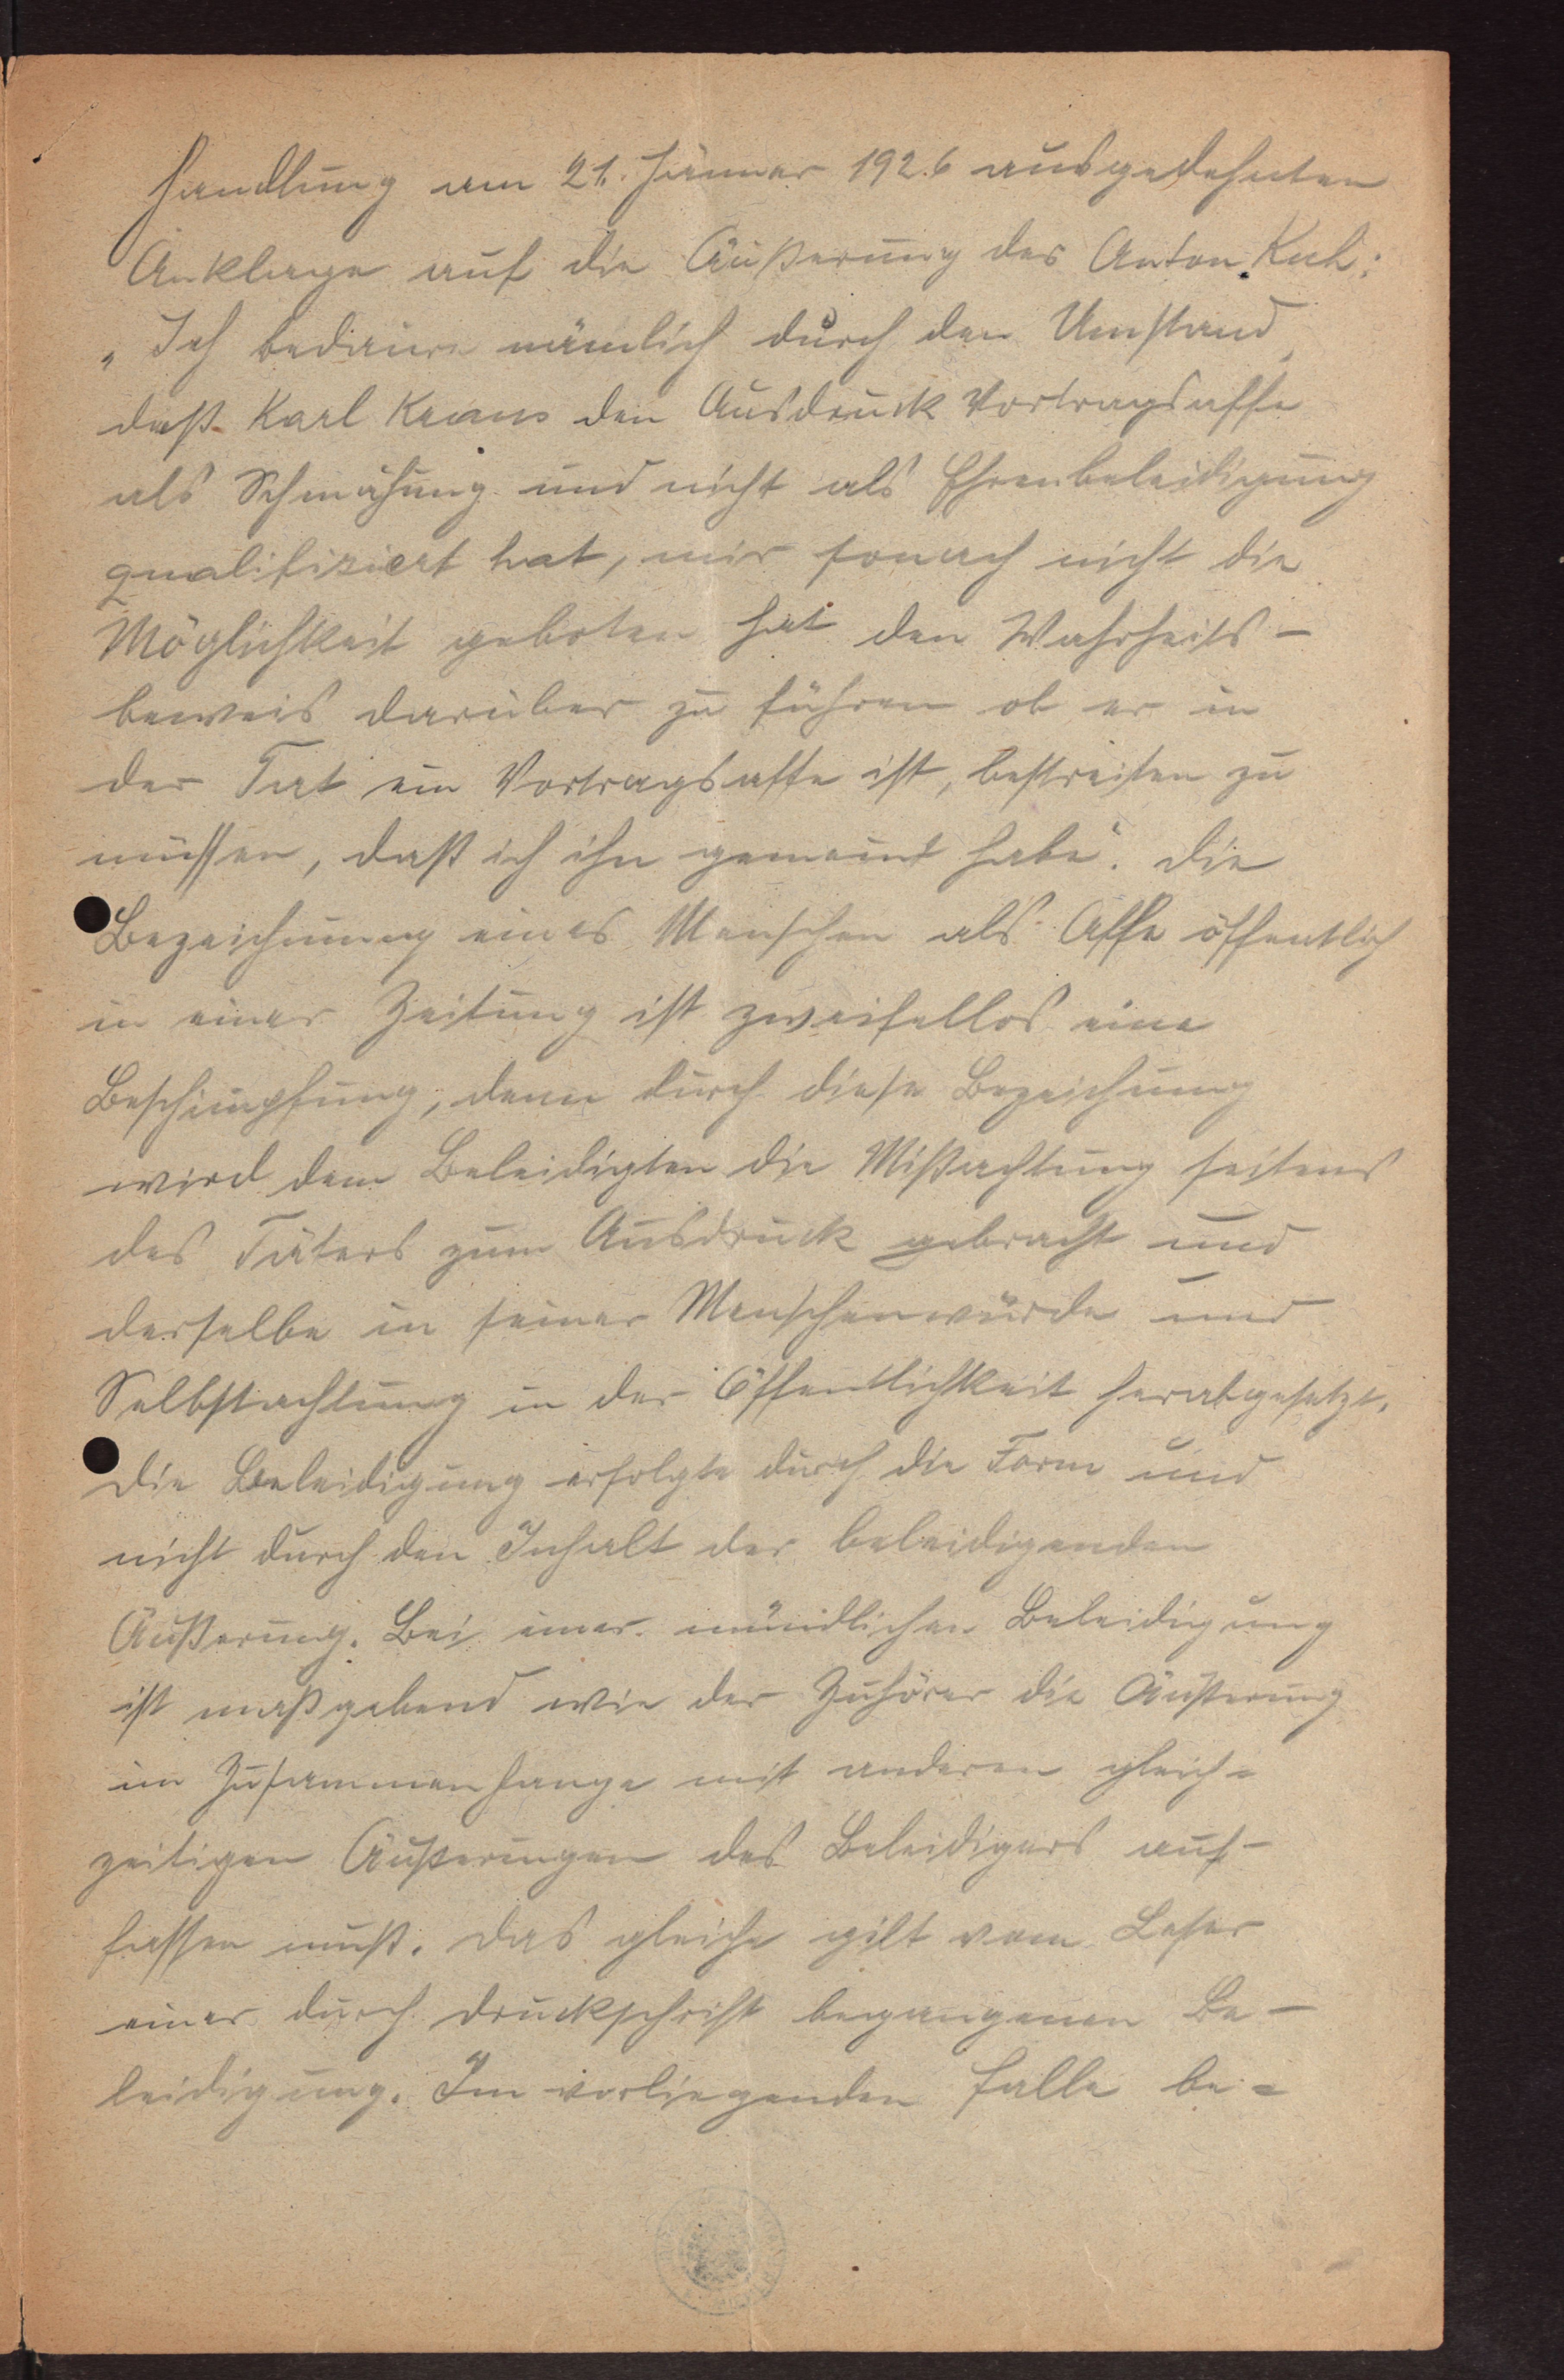 handlung am 21. Jänner 1926 ausgedehnten
Anklage auf die Äußerung des Anton Kuh:
„Ich bedaure nämlich durch den Umstand,
daß Karl Kraus den Ausdruck Vortragsaffe
als Schmähung und nicht als Ehrenbeleidigung
qualifiziert hat, mir sonach nicht die
Möglichkeit geboten hat den Wahrheits-
beweis darüber zu führen ob er in
der Tat ein Vortragsaffe ist, bestreiten zu
müssen, daß ich ihn gemeint habe“. Die
Bezeichnung eines Menschen als Affe öffentlich
in einer Zeitung ist zweifellos eine
Beschimpfung, denn durch diese Bezeichung
wird dem Beleidigten die Mißachtung seitens
des Täters zum Ausdruck gebracht und
derselbe in seiner Menschenwürde und
Selbstachtung in der Öffentlichkeit herabgesetzt.
Die Beleidigung erfolgte durch die Form und
nicht durch den Inhalt der beleidigenden
Äußerung. Bei einer mündlichen Beleidigung
ist maßgebend wie der Zuhörer die Äußerung
im Zusammenhange mit anderen gleich=
zeitigen Äußerungen des Beleidigers auf-
fassen muß. Das gleiche gilt vom Leser
einer durch Druckschrift begangenen Be-
leidigung. Im vorliegenden Falle be=